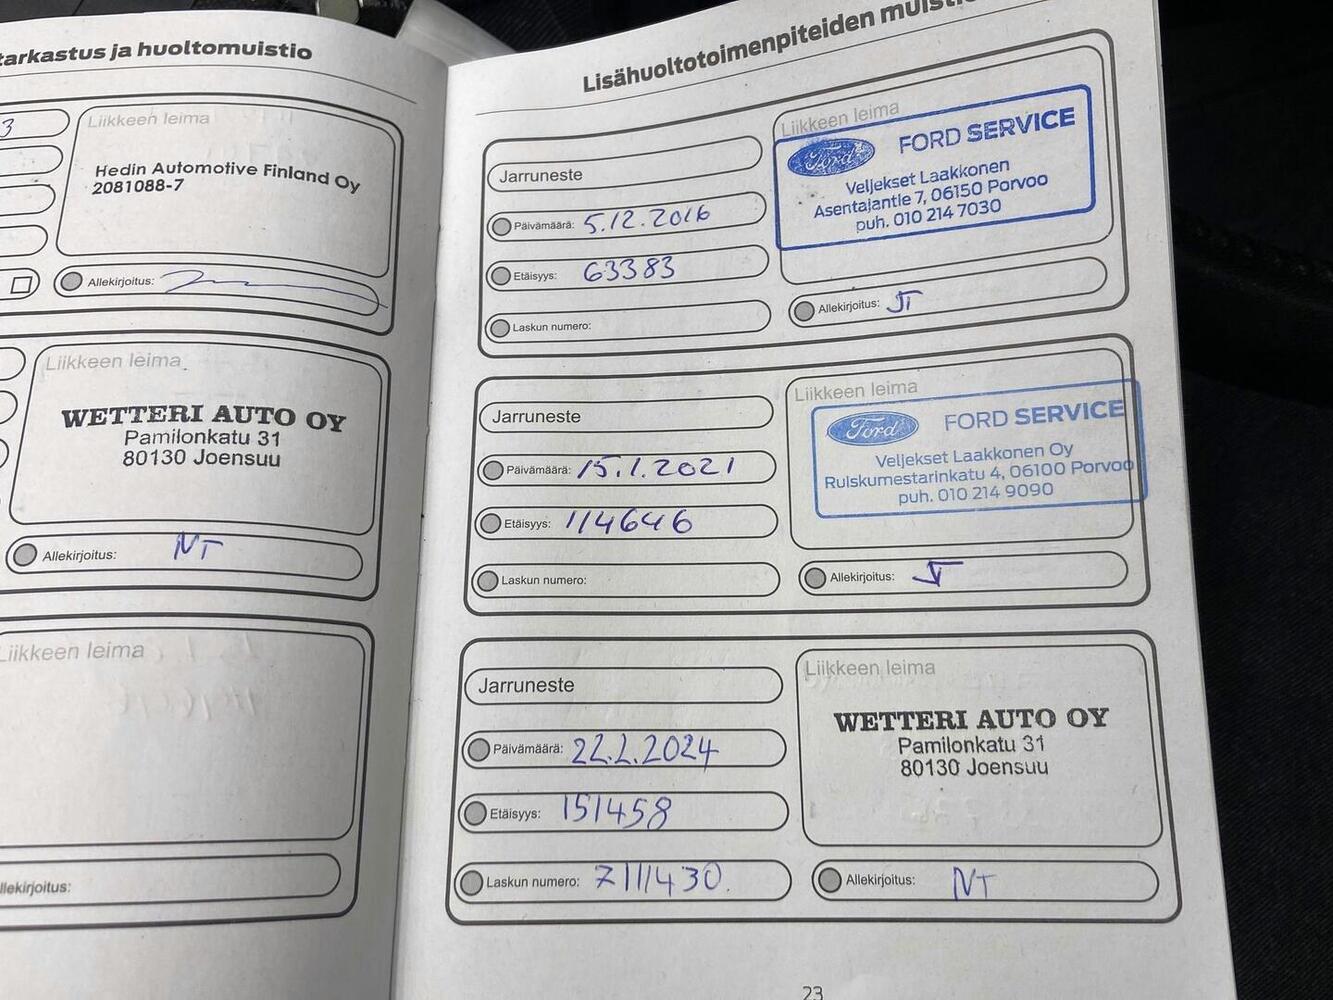 tarkastus ja huoltomuistio
3
Liikkeen leima
Hedin Automotive Finland Oy
2081088-7
Allekirjoitus:
Liikkeen leima
WETTERI AUTO OY
Pamilonkatu 31
80130 Joensuu
Allekirjoitus: NT
Liikkeen leima
llekirjoitus:
Lisähuoltotoimenpiteiden
Jarruneste
Päivämäärä: 5.12.2016
Etäisyys: 63383
Laskun numero:
Liikkeen leima
Ford FORD SERVICE
Veljekset Laakkonen
Asentajantie 7, 06150 Porvoo
puh. 010 214 7030
Allekirjoitus: JT
Jarruneste
Päivämäärä: 15.1.2021
Etäisyys: 114646
Laskun numero:
Liikkeen leima
Ford FORD SERVICE
Veljekset Laakkonen Oy
Ruiskumestarinkatu 4, 06100 Porvoo
puh. 010 214 9090
Allekirjoitus: JT
Jarruneste
Päivämäärä: 22.2.2024
Etäisyys: 151458
Laskun numero: 7111430.
Liikkeen leima
WETTERI AUTO OY
Pamilonkatu 31
80130 Joensuu
Allekirjoitus: NT
23